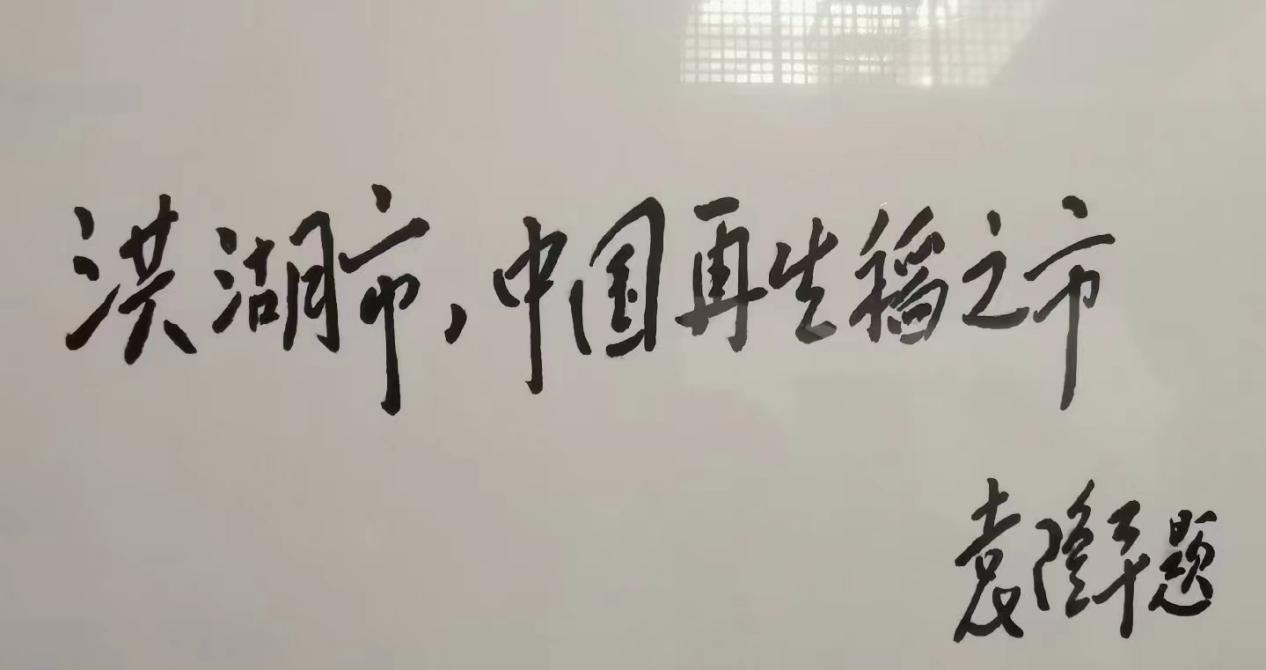 洪湖市,中国再生稻之市
袁隆平题